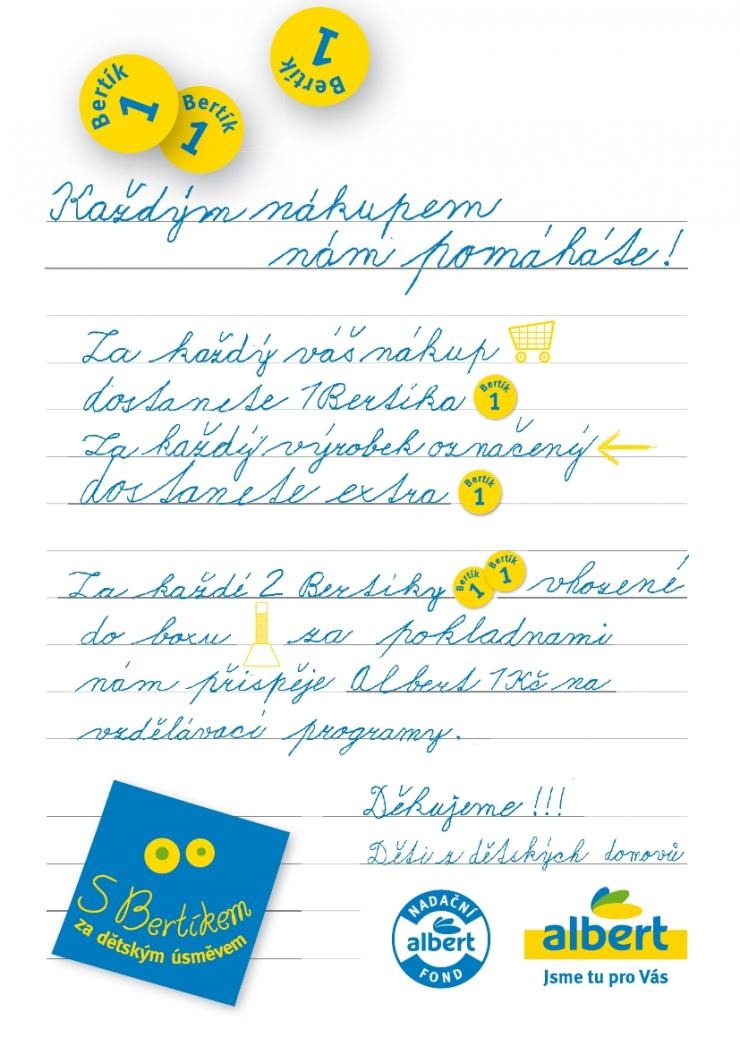 Bertík 1
Bertík 1
Bertík 1
Každým nákupem
nám pomáháte!
Za každý váš nákup
dostanete 1 Bertíka Bertík 1
Za každý výrobek označený
dostanete extra Bertík 1
Za každé 2 Bertíky Bertík 1 Bertík 1 vhozené
do boxu za pokladnami
nám přispěje Albert 1 Kč na
vzdělávací programy.
Děkujeme!!!
Děti z dětských domovů
S Bertíkem
za dětským úsměvem
NADAČNÍ
albert
FOND
albert
Jsme tu pro Vás